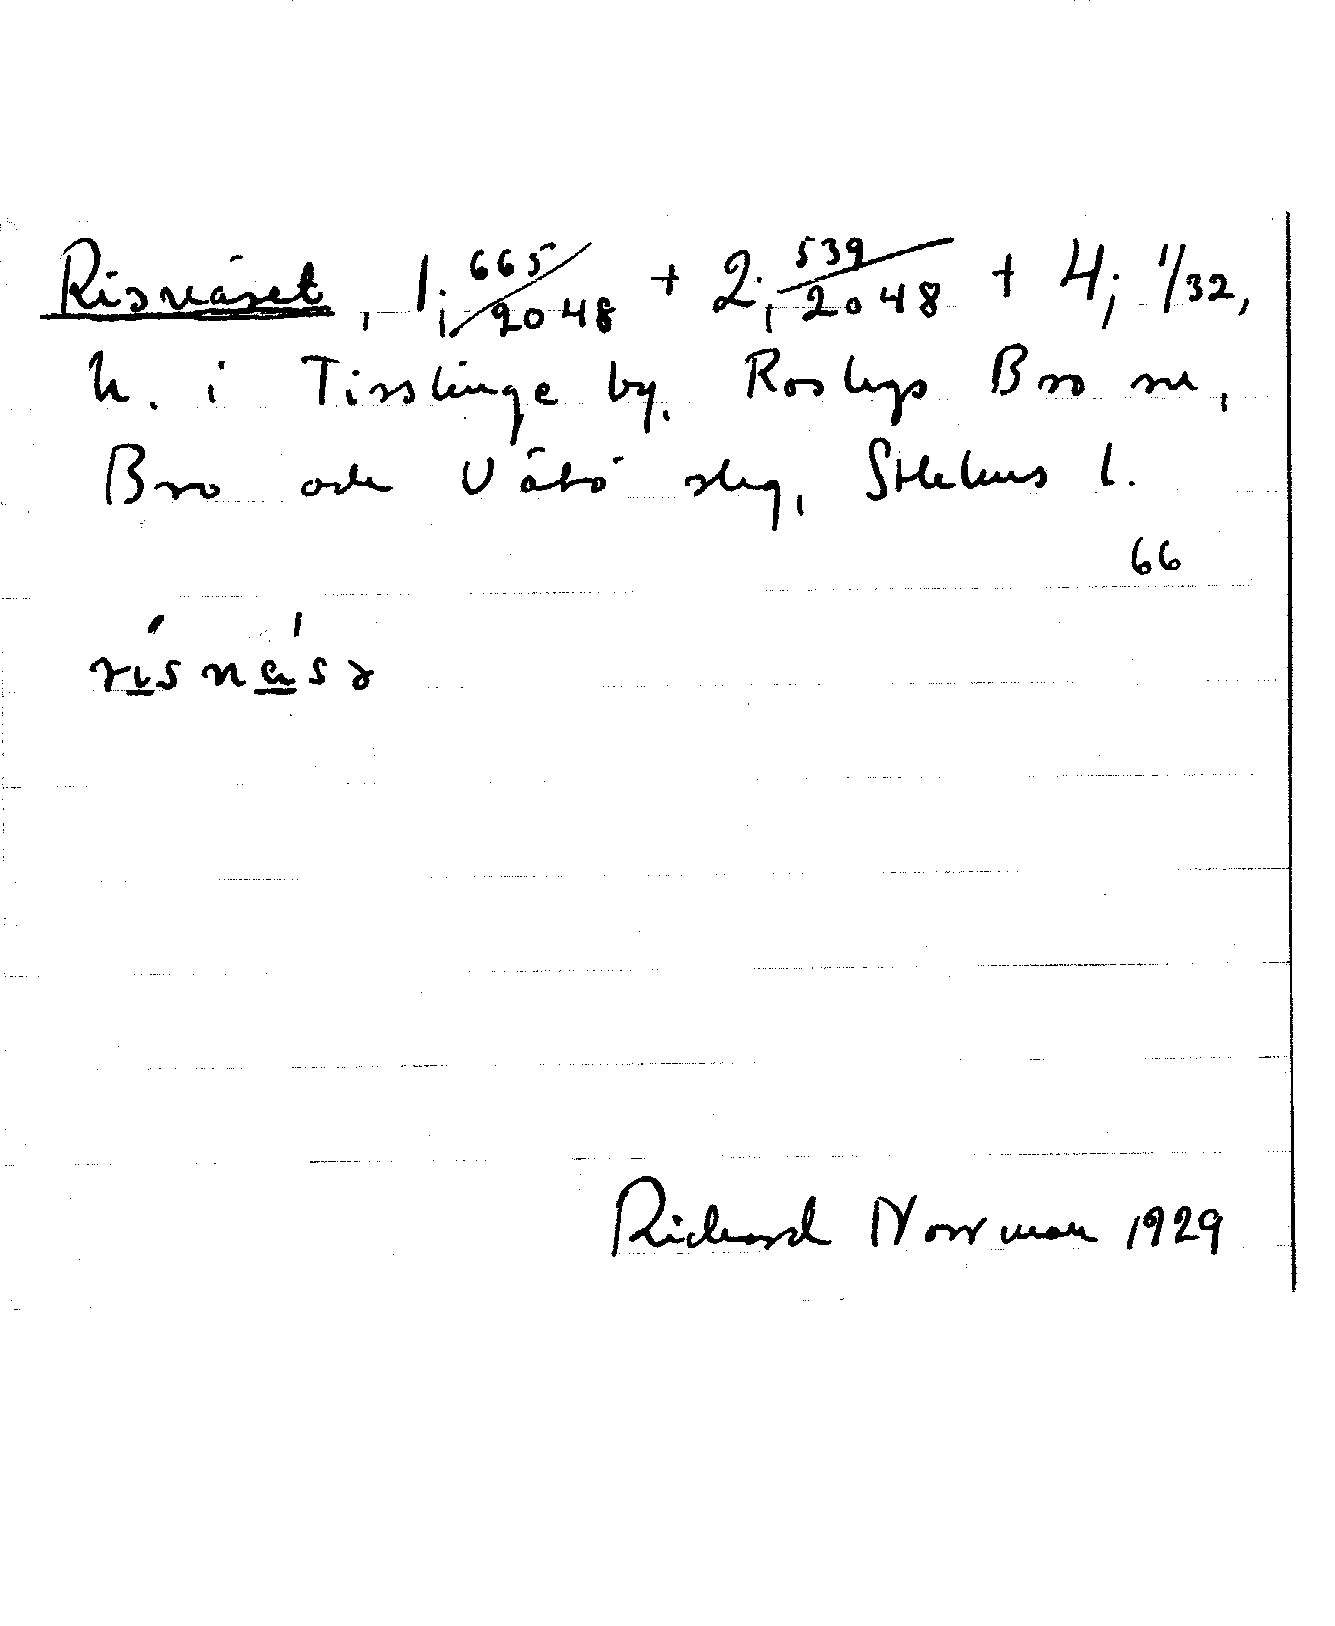 Risnäset, 1; 665/2048 + 2; 539/2048 + 4; 1/32,
h. i Tisslinge by, Roslags Bro sn,
Bro och Vätö slag, Sthlms l.
66
Richard Norrman 1929